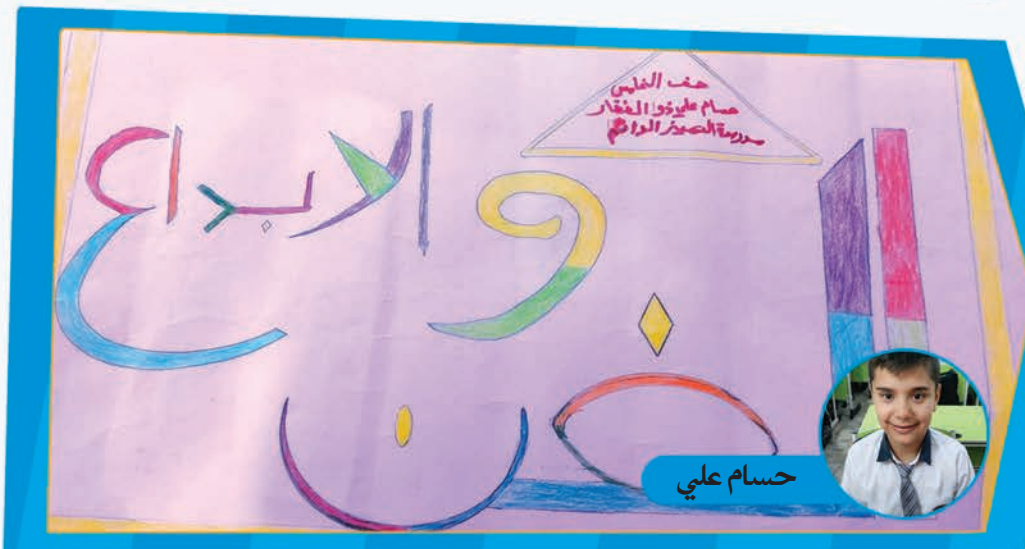 صف الخامس
حسام علي ذو الفقار
مدرسة العميد
الفن
والابداع
حسام علي